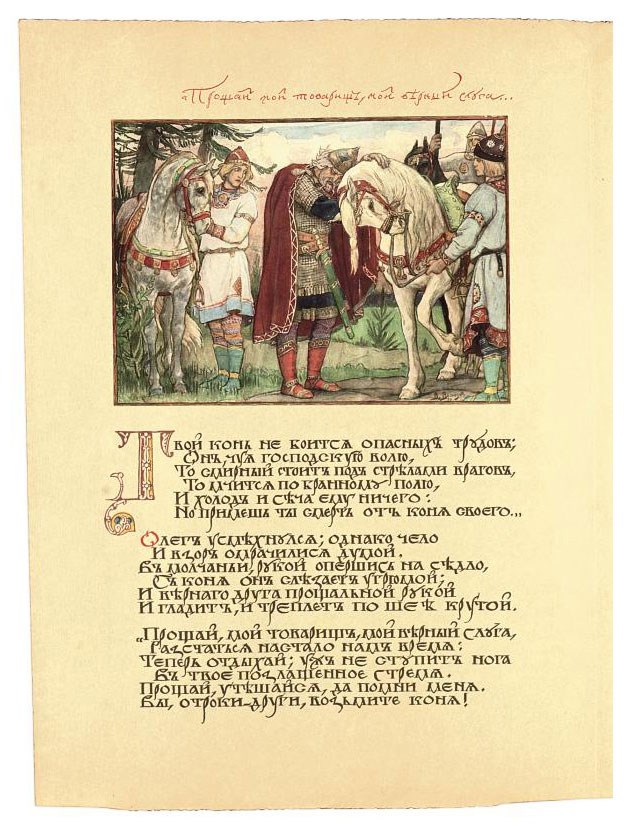 „Прощай мой товарищъ, мой вѣрный слуга...
Твой конь не боится опасныхъ трудовъ;
Онъ, чуя господскую волю,
То смирный стоитъ подъ стрѣлами враговъ,
То мчится по бранному полю,
И холодъ и сѣча ему ничего:
Но примешь ты смерть отъ коня своего...
Олегъ усмѣхнулся; однако чело
И взоръ омрачилися думой.
Въ молчаньи, рукой опершись на сѣдло,
Съ коня онъ слѣзаетъ угрюмой;
И вѣрнаго друга прощальной рукой
И гладитъ, и треплетъ по шеѣ крутой.
„Прощай, мой товарищъ, мой вѣрный слуга,
Разстаться настало намъ время:
Теперь отдыхай; ужъ не ступитъ нога
Въ твое позлащенное стремя.
Прощай, утѣшайся, да помни меня.
Вы, отроки-други, возьмите коня!